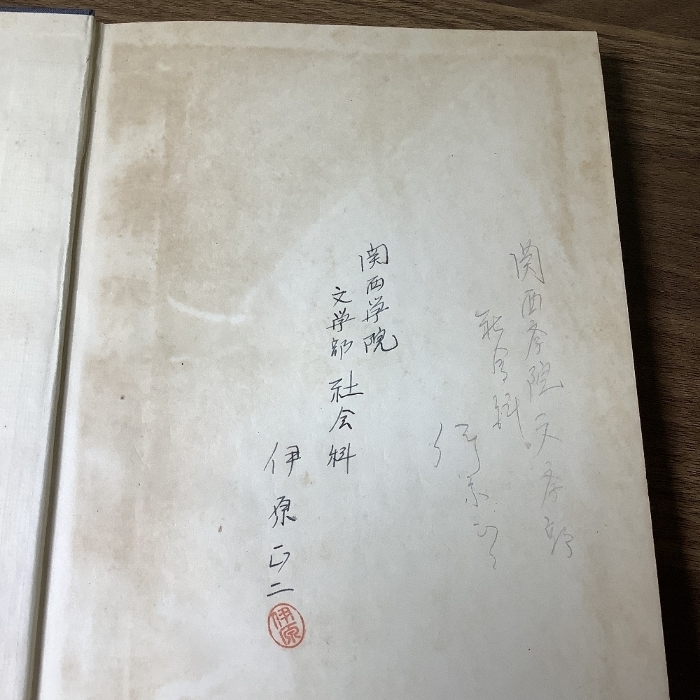 関西学院文学部
社会科
伊原正二
関西学院
文学部社会科
伊原正二
伊原